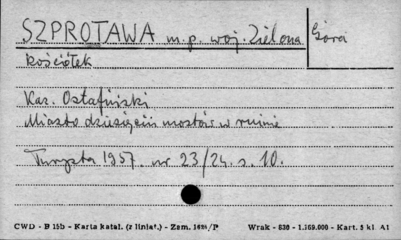 SZPROTAWA m.p. woj. Zielona Góra
kościółek
Kaz. Ostafiński
Miasto dziesięciu mostów w ruinie
Turysta 1957. nr 23/24. s. 10.
CWD - B 15b - Karta katal. (z linia*.) - Zam. 1626/P
Wrak - 830 - 1.169.000 - Kart. 5 kl A1